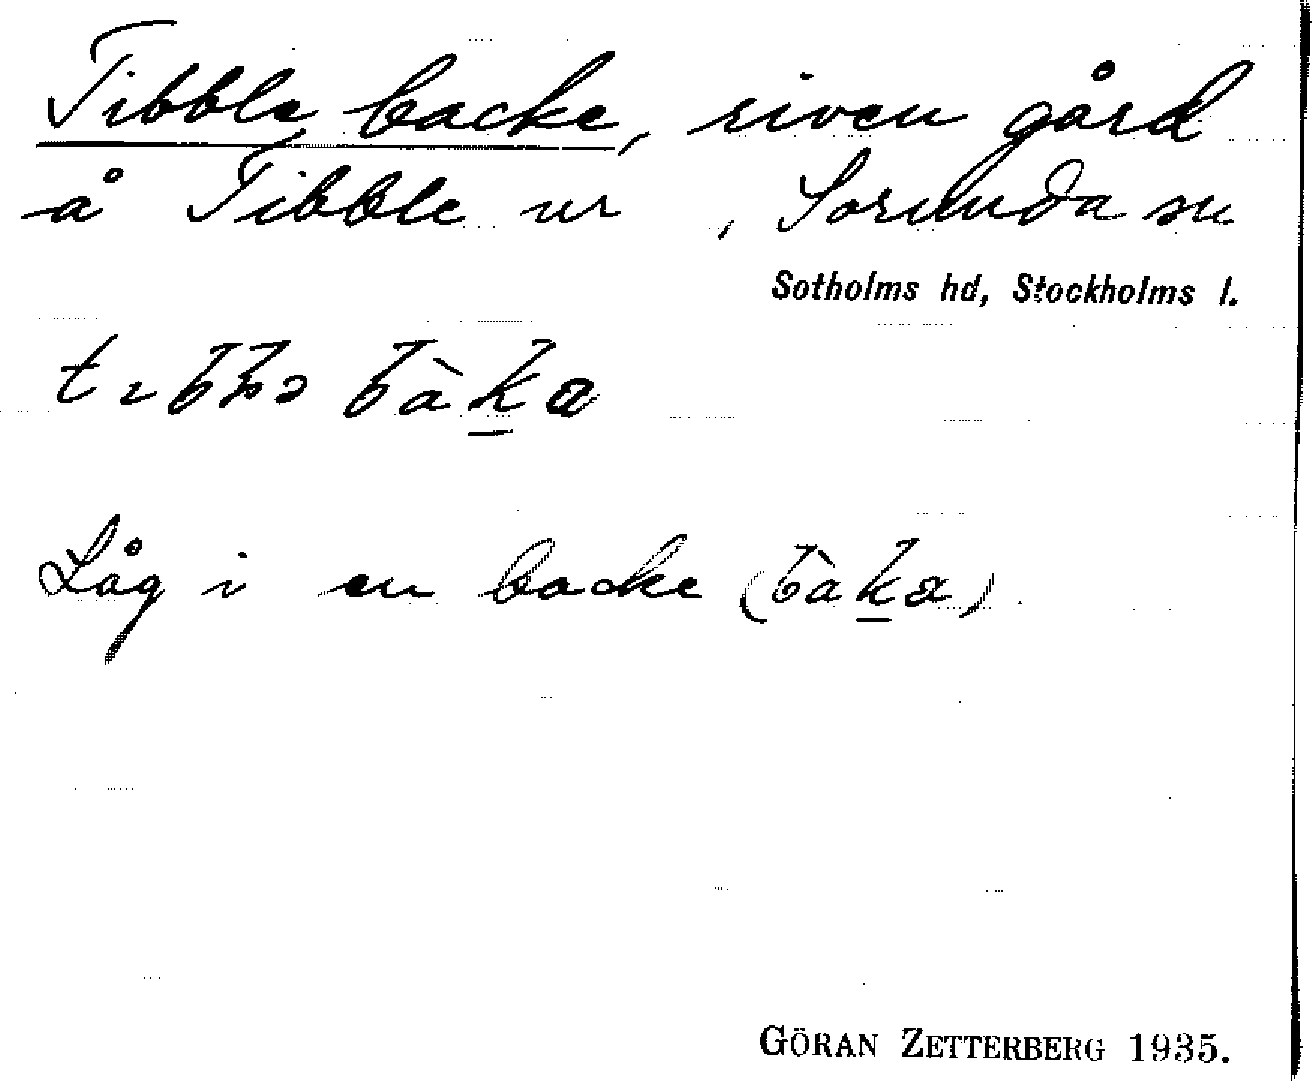 Tibble backe, riven gård
å Tibble ur , Sorunda sn
Sotholms hd, Stockholms l.
bàka
Låg i en backe (bàka).
GÖRAN ZETTERBERG 1935.